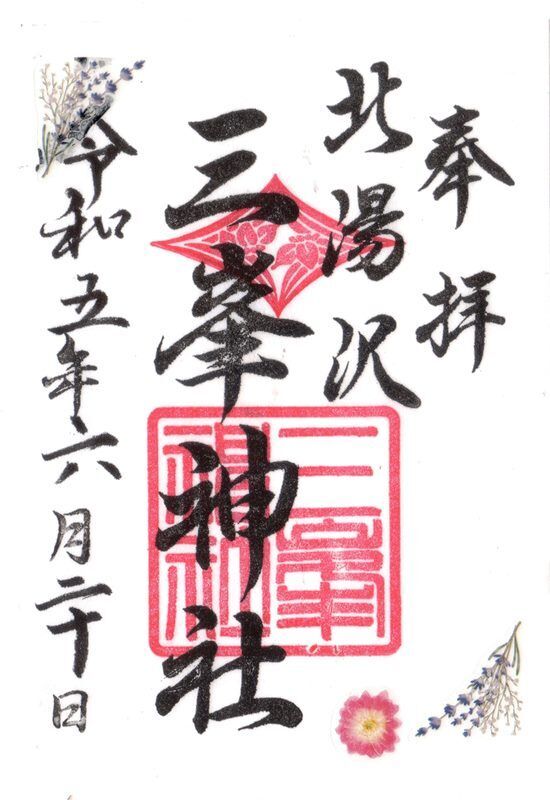 奉拝
北湯沢
三峯神社
三峯神社
令和五年六月二十日